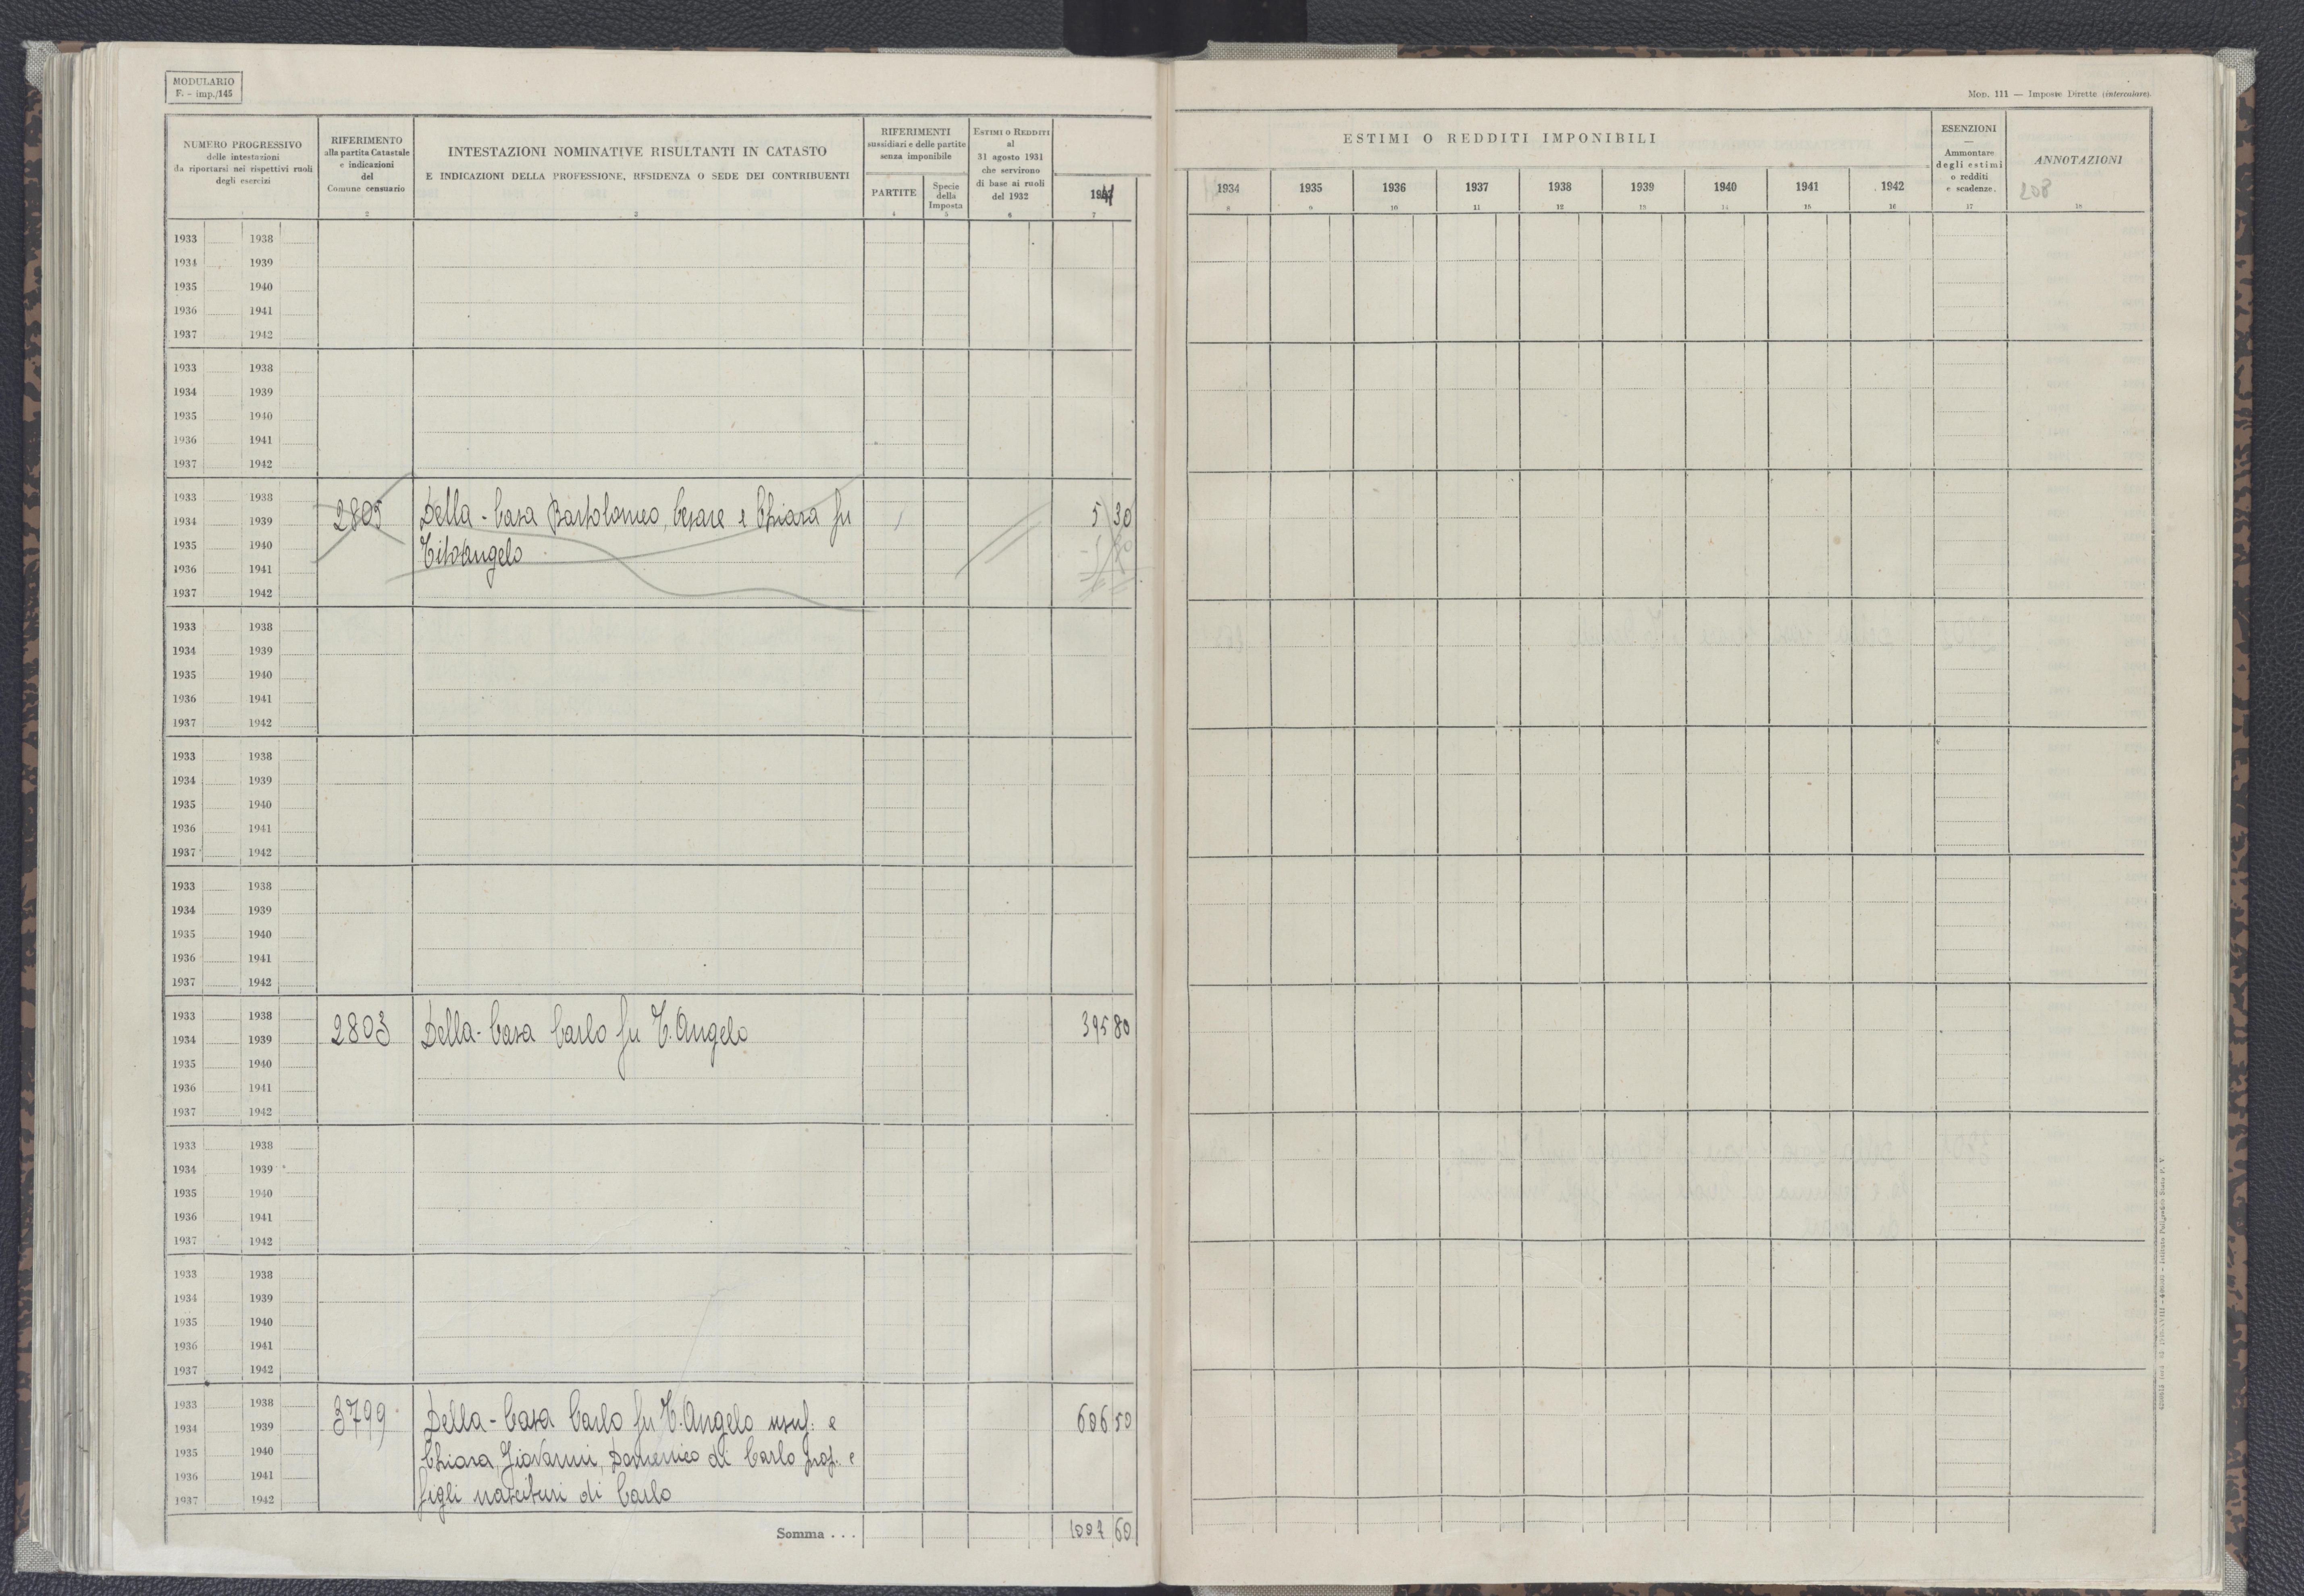 MODULARIO
F. - imp./145
NUMERO PROGRESSIVO
delle intestazioni
da riportarsi nei rispettivi ruoli
degli esercizi
RIFERIMENTO
alla partita Catastale
e indicazioni
del
Comune censuario
2
INTESTAZIONI NOMINATIVE RISULTANTI IN CATASTO
E INDICAZIONI DELLA PROFESSIONE, RESIDENZA O SEDE DEI CONTRIBUENTI
3
RIFERIMENTI
sussidiari e delle partite
senza imponibile
PARTITE
4
Specie
della
Imposta
5
Estimi o Redditi
al
31 agosto 1931
che servirono
di base ai ruoli
del 1932
6
7
1933 1938
1934 1939
1935 1940
1936 1941
1937 1942
1933 1938
1934 1939
1935 1940
1936 1941
1937 1942
1933 1938
1934 1939
1935 1940
1936 1941
1937 1942
2805 Della-Casa Bartolomeo, Cesare e Chiara fu 5 30
TitoAngelo
1933 1938
1934 1939
1935 1940
1936 1941
1937 1942
1933 1938
1934 1939
1935 1940
1936 1941
1937 1942
1933 1938
1934 1939
1935 1940
1936 1941
1937 1942
1933 1938
1934 1939
1935 1940
1936 1941
1937 1942
2803 Della-Casa Carlo fu T. Angelo 395 80
1933 1938
1934 1939
1935 1940
1936 1941
1937 1942
1933 1938
1934 1939
1935 1940
1936 1941
1937 1942
1933 1938
1934 1939
1935 1940
1936 1941
1937 1942
3799 Della-Casa Carlo fu T. Angelo usuf: e 606 50
Chiara, Giovanni, Domenico di Carlo prop. e
figli nascituri di Carlo
Somma . . . 1007 60
Mod. 111 — Imposte Dirette (intercalare).
ESTIMI O REDDITI IMPONIBILI
1934 1935 1936 1937 1938 1939 1940 1941 1942
8 9 10 11 12 13 14 15 16
ESENZIONI
—
Ammontare
degli estimi
o redditi
e scadenze.
17
ANNOTAZIONI
208
18